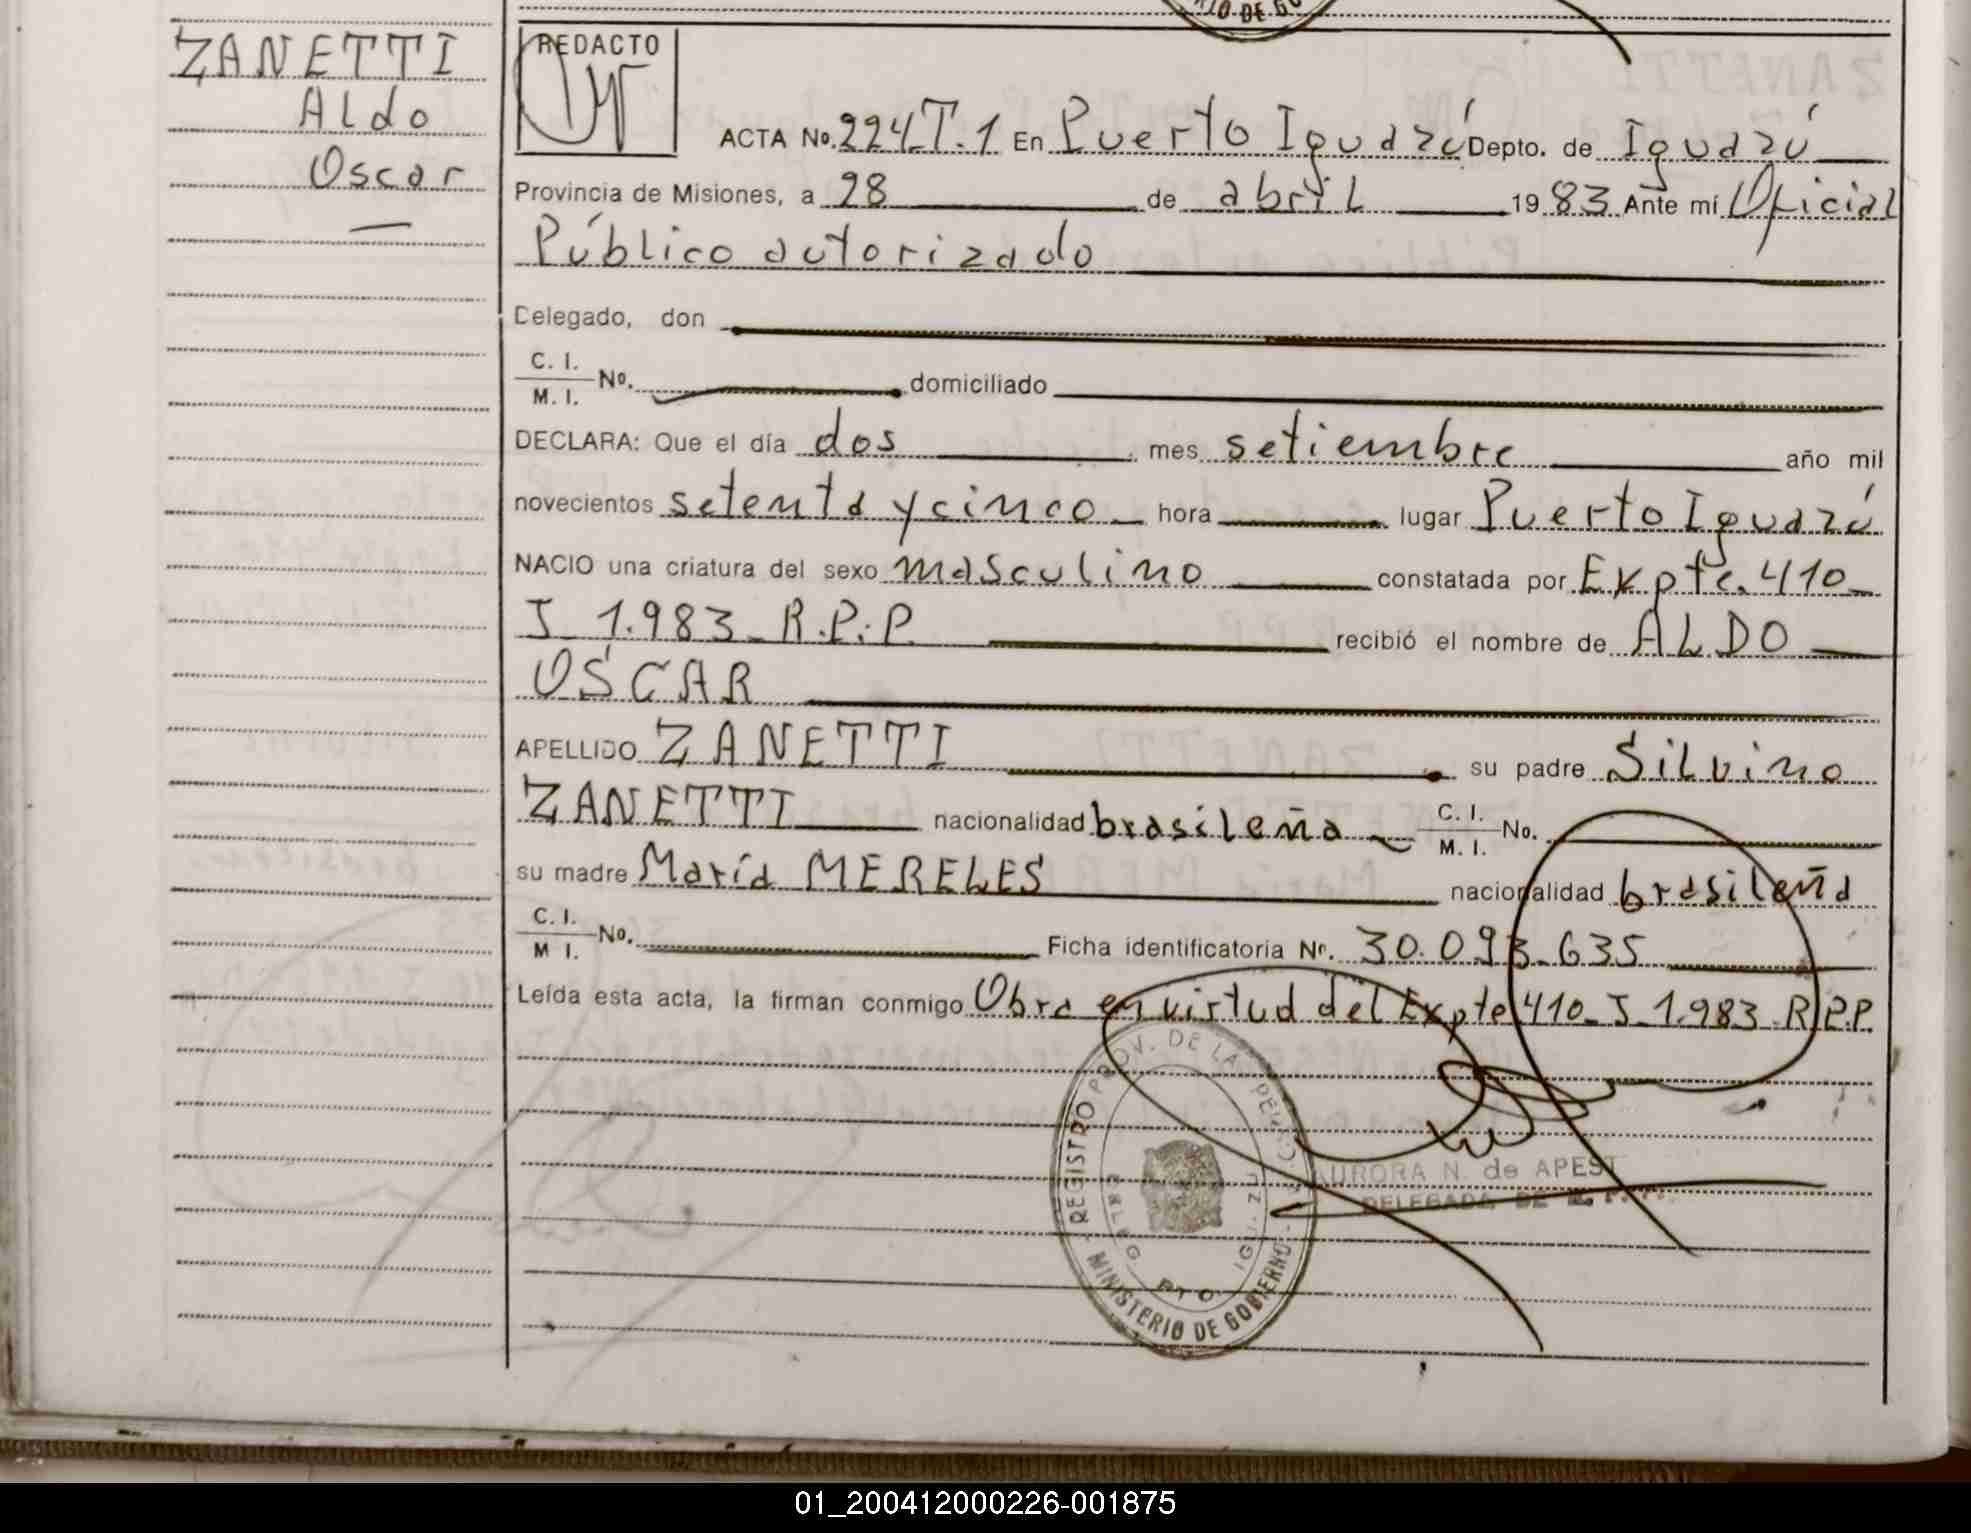 RIO DE GO
ZANETTI
Aldo
Oscar
REDACTO
ACTA No. 224T.1 En Puerto Iguazú Depto. de Iguazú
Provincia de Misiones, a 28 de abril 1983 Ante mí Oficial
Público autorizado
Delegado, don
C. I.
M. I. No. domiciliado
DECLARA: Que el día dos mes setiembre año mil
novecientos setenta y cinco hora lugar Puerto Iguazú
NACIO una criatura del sexo masculino constatada por Expte. 410_
J_1.983_R.P.P. recibió el nombre de ALDO
OSCAR
APELLIDO ZANETTI su padre Silvino
ZANETTI nacionalidad brasileña C. I.
M. I. No.
su madre María MERELES nacionalidad brasileña
C. I.
M I. No. Ficha identificatoria Nº. 30.093.635
Leída esta acta, la firman conmigo Obra en virtud del Expte 410_J_1.983_R.P.P.
REGISTRO PROV. DE LAS PERS.
DELEG. PTO. IGUAZU
MINISTERIO DE GOBIERNO
AURORA N. de APEST
DELEGADA DE
01_200412000226-001875